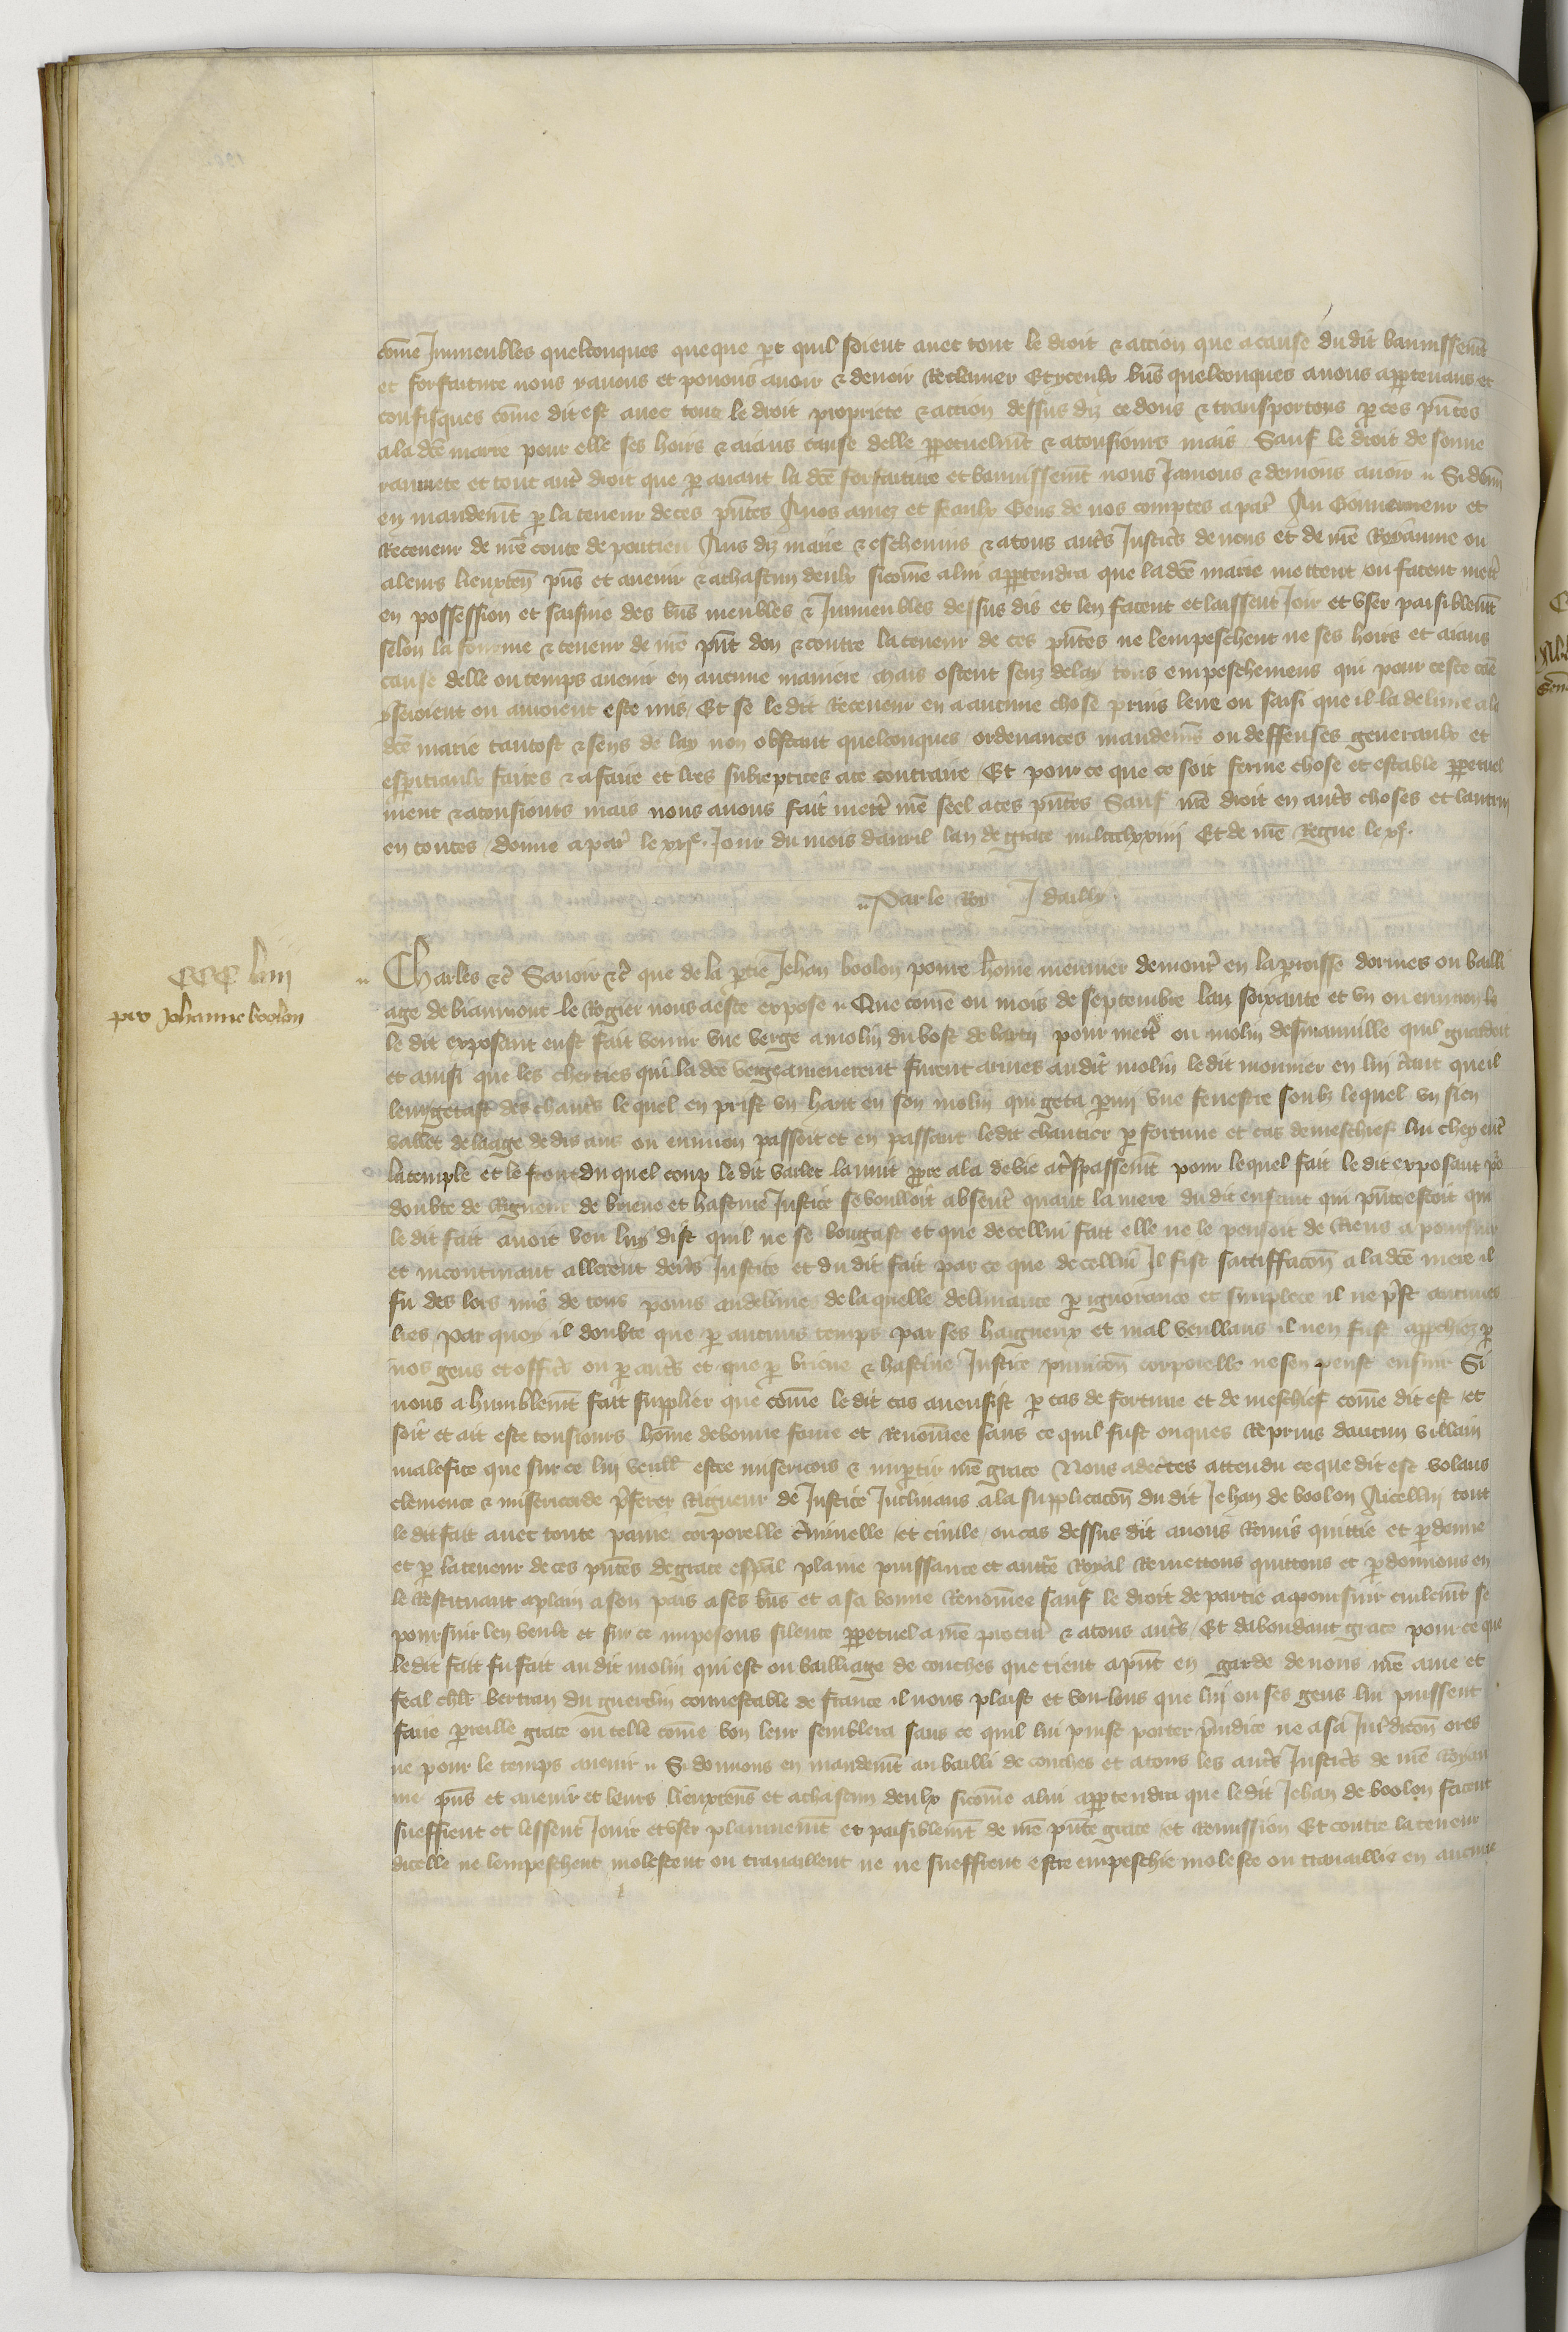 cõme Jmmeubles quelconques queque p̱t quil soient avec tout le droit & action que a cause du dit bannissem̃t
et forfaiture nous y avons et povons avoir & devoir Reclamer Et yceulx biẽs quelconques a nous app̱tenans et
confisques cõme dit est avec tout le droit propriete & action dessus diz cedons & transportons p̱ ces pñtes
a la dc̃e marie pour elle ses hoirs & aians cause delle pp̱etuelmẽt & a tousiours mais Sauf le droit de souve
rainnete et tout autˀ droit que p̱ avant la dc̃e forfaiture et bannissemẽt nous J avions & devions avoir Si donñ
en mandemẽt p̱ la teneur de ces pñtes A nos amez et feaulx Gens de nos comptes a parˀ Au Gouverneur et
Receveur de nr̃e conte de pontieu Aus diz maire & eschevins & a tous autˀs Justicˀs de nous et de nr̃e Royaume ou
a leurs lieuxteñ pñs et avenir & a chascun deulx sicõme a lui app̱tendra que la dc̃e marie mettent ou facent mettˀ
en possession et saisine des biẽs meubles & Jmmeubles dessus dis et len facent et laissent Joir et user paisiblemẽt
selon la fourme & teneur de nr̃e pñt don & contre la teneur de ces pñtes ne lempeschent ne ses hoirs et aians
cause delle ou temps avenir en aucune maniere mais ostent senz delay tous empeschemens qui pour ceste cãe
y seroient ou auroient este mis Et se le dit Receveur en a aucune chose prins leve ou saisi que il la delivre a la
dc̃e marie tantost & sens de lay non obstant quelconques ordenances mandemẽs ou deffenses generaulx et
esp̱itiaulx faites & a faire et lr̃es subreptices a ce contraire Et pour ce que ce soit ferme chose et estable pp̱etuel
ment & a tousiours mais nous avons fait mettˀ nr̃e seel a ces pñtes Sauf nr̃e droit en autˀs choses et lautruy
en toutes donne a parˀ le xxje Jour du mois davril lan de grace mil ccclxxiiij Et de nr̃e Regne le xje
Par le Roy J dailly
CCC liiij
pro Johanne boolon
Charles &c̃ Savoir &c̃ que de la p̱tie Jehan boolon povre hõme meunier demourˀ en la p̱roisse dormes ou bailli
age de biaumont le Rogier nous a este expose Que comẽ ou mois de septembre lan soixante et un ou environ le
le dit exposant eust fait venir une verge a molin du bosc de pour mettˀ ou molin quil gardoit
et ainsi que les cherties qui la dc̃e verge amenerent furent arives au dit molin le dit monnier en lui cˀant que il
leur getast des chantˀs lequel en prist un hault en son molin qui geta p̱mi une fenestre soubz lequel un sien
vallet de leage de dis ans ou environ passoit et en passant le dit chantier p̱ fortune et cas de meschief lui chey entˀ
la temple et le front du quel coup le dit varlet la nuit pp̱ce ala de vie a tˀspassemẽt pour lequel fait le dit exposant po
doubte de Rigueur de brieve et hastive Justice se vouloit absentˀ quant la mere du dit enfant qui pñte estoit qui
le dit fait avoit veu luy dist quil ne se bougast et que de cellui fait elle ne le pensoit de Riens a poursuir
et incontinant allerent devˀs Justice et du dit fait par ce que de cellui Jl fist sattiffacoñ a la dc̃e mere il
fu des lors mis de tous poins au delivre de la quelle delivrance p̱ ignorance et simplece il ne pˀst aucunes
lr̃es par quoy il doubte que p̱ aucuns temps par ses haigneux et mal veullans il nen fust app̱chiez p̱
nos gens et officˀs ou p̱ autˀs et que p̱ brieve & hastive Justice punicoñ corporelle ne sen peust ensuir Si
nous a humblemẽt fait supplier que cõme le dit cas avensist p̱ cas de fortune et de meschief cõme dit est et
soit et ait este tousiours hõme de bonne fame et Renõmee sans ce quil fust onques Reprins daucun villain
malefice que sur ce lui veull estre misericors & imp̱tir nr̃e grace Nous adecˀtes attendu ce que dit est volans
clemence & misericorde pˀferer Rigueur de Justice Juclinans a la supplicacoñ du dit Jehan de boolon A icellui tout
le dit fait avec toute paine corporelle cˀminelle et civile ou cas dessus dit avons Remis quittie et p̱donne
et p̱ la teneur de ces pñtes de grace esp̱al plaine puissance et auttˀe Royal Remettons quittons et p̱donnons en
le Restituant a plain a son pais a ses biẽs et a sa bonne Renõmee sauf le droit de partie a poursuir civilemẽt se
poursuir len veult et sur ce imposons silence pp̱etuel a nr̃e procurˀ & a tous autˀs Et dabondant grace pour ce que
le dit fait fu fait au dit molin qui est ou bailliage de conches que tient a pñt en garde de nous nr̃e ame et
feal chlr̃ bertran du guerclin connestable de france il nous plaist et voulons que lui ou ses gens lui puissent
faire p̱reille grace ou telle cõme bon leur semblera sans ce quil lui puist porter pˀiudice ne a sa Jurˀdicoñ ores
ne pour le temps avenir Si donnons en mandemẽt au bailli de conches et a tous les autˀs Justicˀs de nr̃e Royau
me pñs et avenir et leurs lieuxteñs et a chascun deulx sicõme a lui app̱tendra que le dit Jehan de boolon facent
sueffrent et lessent Jouir et user plainnemẽt et paisiblemẽt de nr̃e pñte grace et Remission Et contre la teneur
dicelle ne lempeschent molestent ou travaillent ne ne sueffrent estre empeschie moleste ou travaillie en aucune